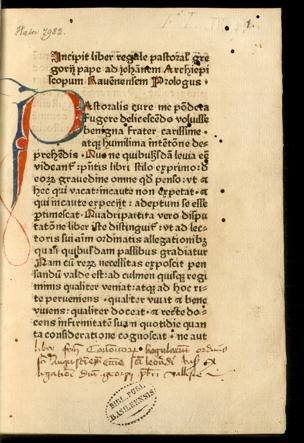 Hain 7982.
1.
Incipit liber regule pastoral' gre
gorij pape ad johānem Archiepi
scopum Rauēnensem Prologus
PAstoralis cure me pōdera
fugere delitescēdo voluisse
benigna frater carissime
atq₃ humilima intētōne de
prehēdis Que ne quibusdā leuia eē
videant᷑ pn̄tis libri stilo exprimo d
eorum grauedine omne qd penso: vt ⁊
hec qui vacat: incaute non expetat ⁊
qui incaute expecijt: adeptum se esse
ptimescat Quadripartita vero dispu
tatōne liber iste distinguit᷑ vt ad lec-
toris sui aīm ordinatis allegationib₃
quasi quibusdam passibus gradiatur
Nam cū rerum necessitas exposcit pen
sandū valde est: ad culmen quisq₃ regi
minis qualiter veniat: atq₃ ad hoc ri-
te perueniens qualiter viuat ⁊ bene
viuens: qualiter doceat ⁊ recte do-
cens infirmitatē suā quotidie quan
ta consideratione cognoscat ne aut
liber ordinis
sti leonardi
georgij
BIBL. PUBL.
BASILEENSIS.